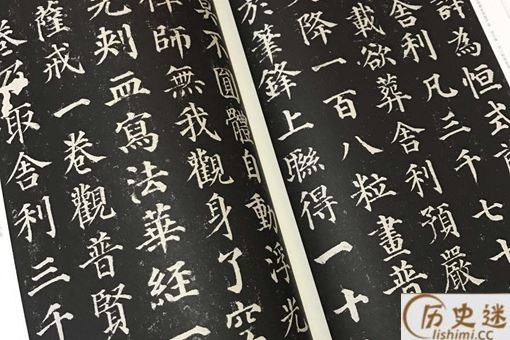 許為恒式
舍利凡三千七十
載欲葬舍利預嚴
又降一百八粒畫普
於筆鋒上聯得一十
莫不圓體自動浮光
禪師無我觀身了空
先刺血寫法華經一
薩戒一卷觀普賢
卷乃取舍利三千
历史迷
lishimi.cc